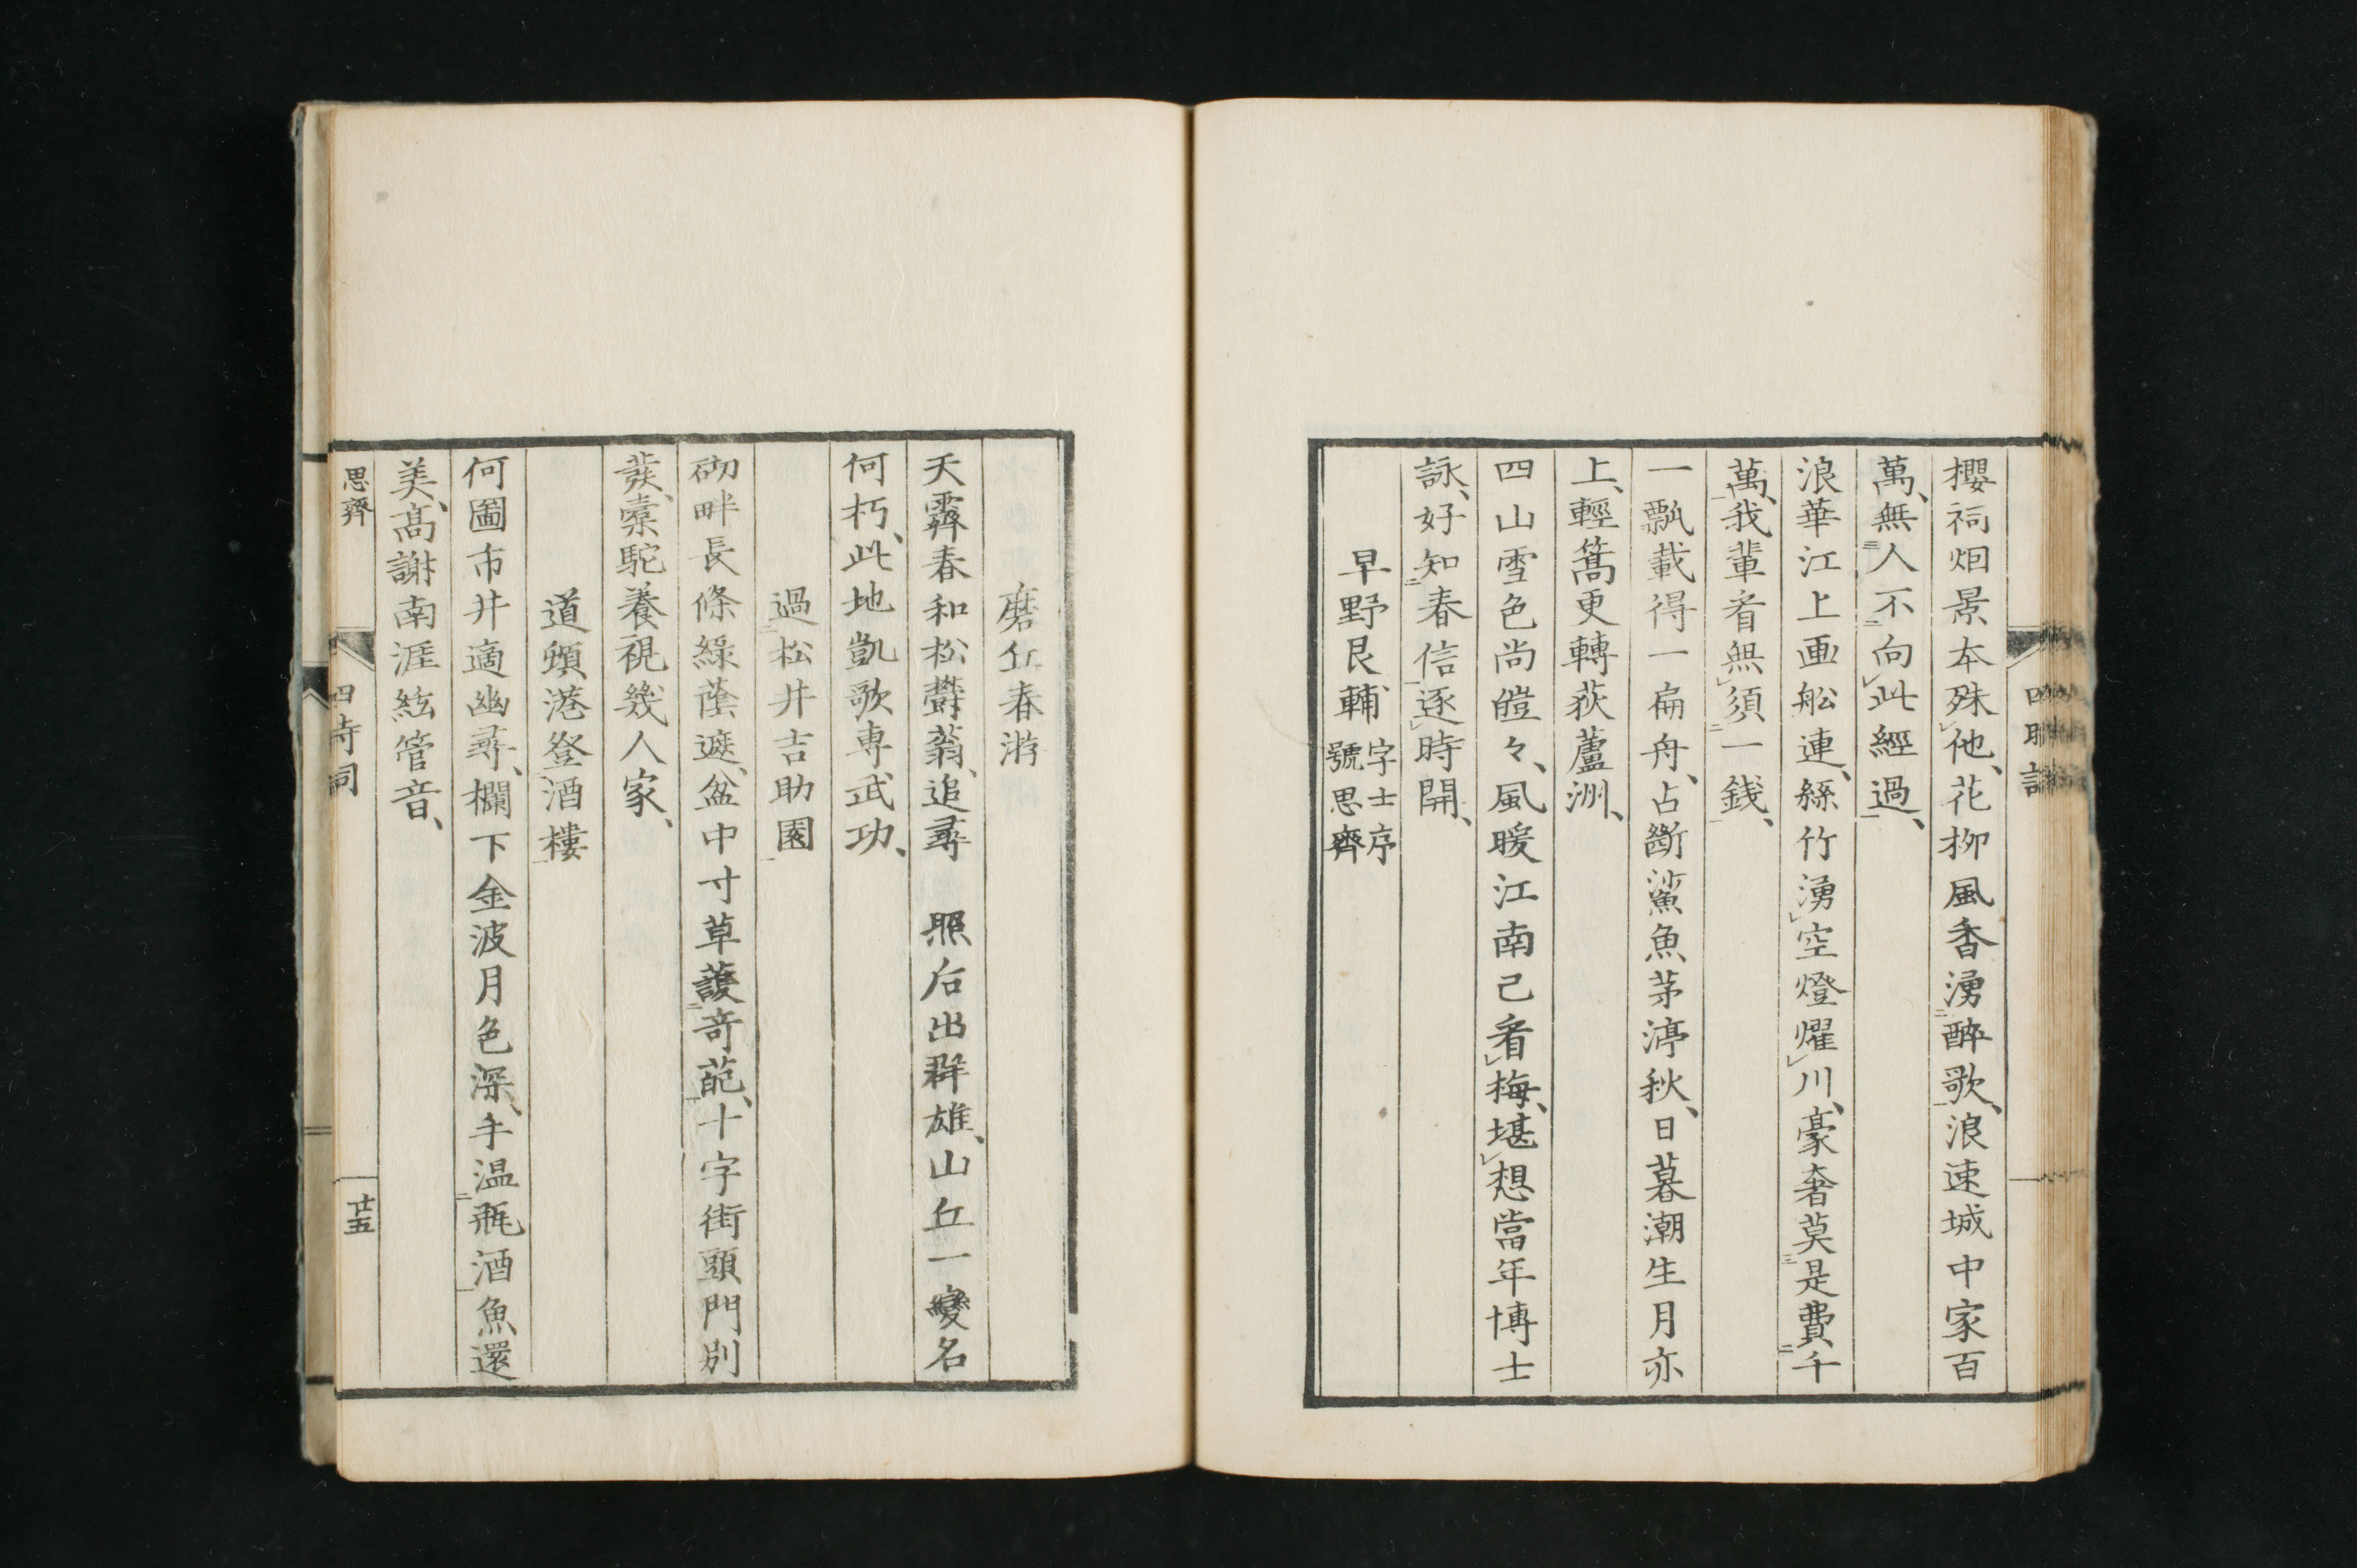 櫻祠烟景本殊他、花柳風香湧醉歌、浪速城中家百
萬、無人不向此經過、
浪華江上画舩連、絲竹湧空燈燿川、豪奢莫是費千
萬、我輩看無須一錢、
一瓢載得一扁舟、占斷鯊魚茅渟秋、日暮潮生月亦
上、輕篙更轉荻蘆洲、
四山雪色尚皚々、風暖江南已看梅、堪想當年博士
詠、好知春信逐時開、
早野艮輔 字士序 號思齊
磨丘春游
天霽春和松欝蓊、追尋 照后出群雄、山丘一變名
何朽、此地凱歌専武功、
過松井吉助園
砌畔長條綠蔭遮、盆中寸草護奇葩、十字街頭門別
業、槖駝養視幾人家、
道頓港登酒樓
何圖市井適幽尋、欄下金波月色深、手温瓶酒魚還
美、髙謝南涯絃管音、
思齊 四時詞 廿五